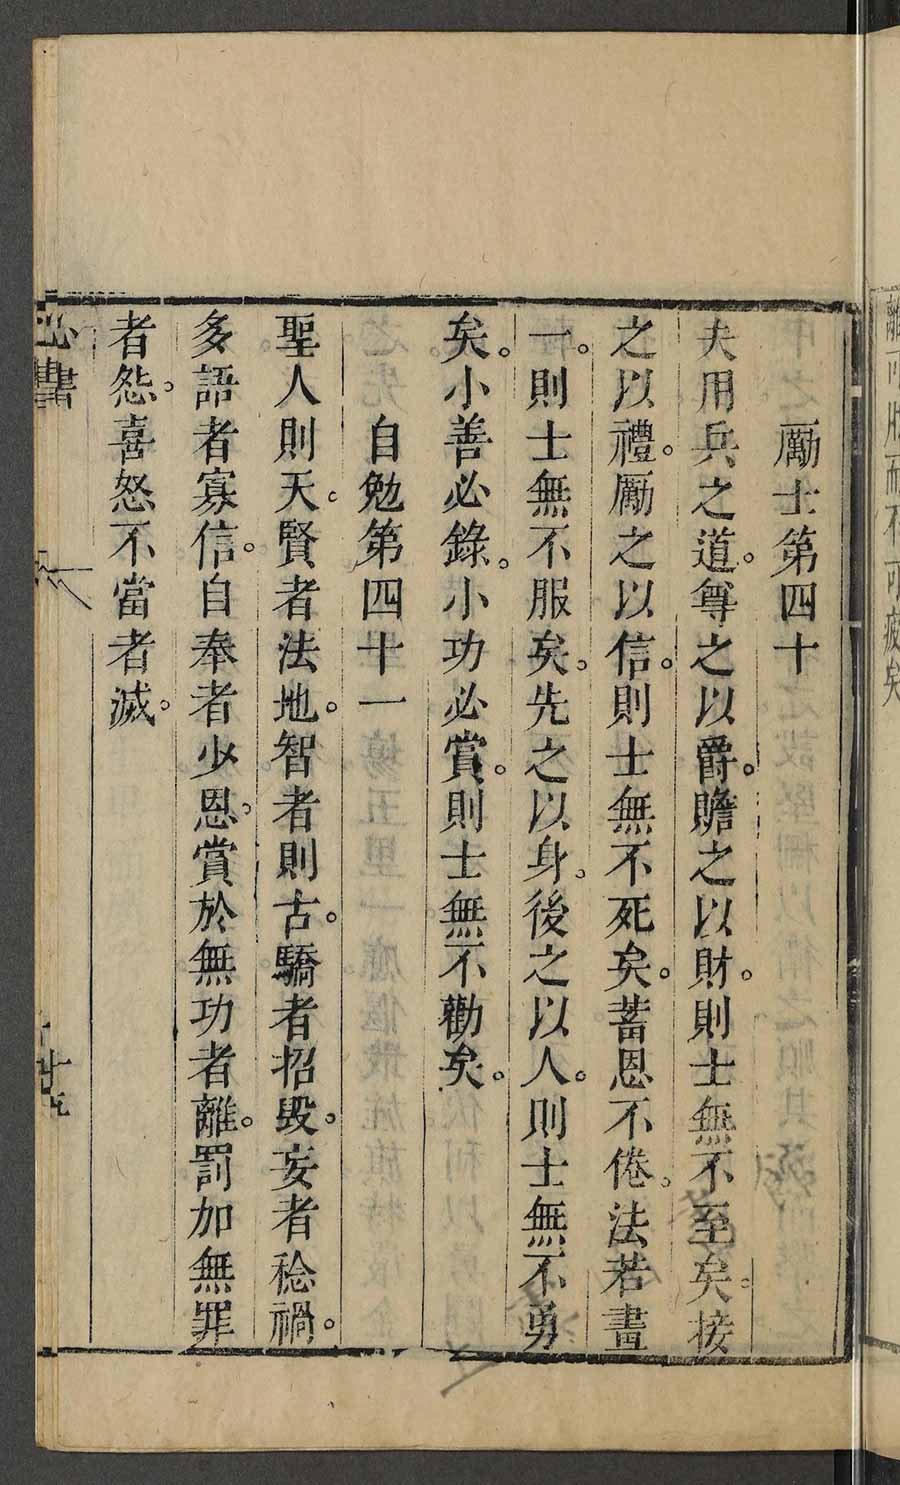 離可服而不可疲矣
厲士第四十
夫用兵之道。尊之以爵。贍之以財。則士無不至矣。接
之以禮。厲之以信。則士無不死矣。蓄恩不倦。法若畫
一。則士無不服矣。先之以身。後之以人。則士無不勇
矣。小善必錄。小功必賞。則士無不勸矣。
自勉第四十一
聖人則天。賢者法地。智者則古。驕者招毀。妄者稔禍。
多語者寡信。自奉者少恩。賞於無功者離。罰加無罪
者怨。喜怒不當者滅。